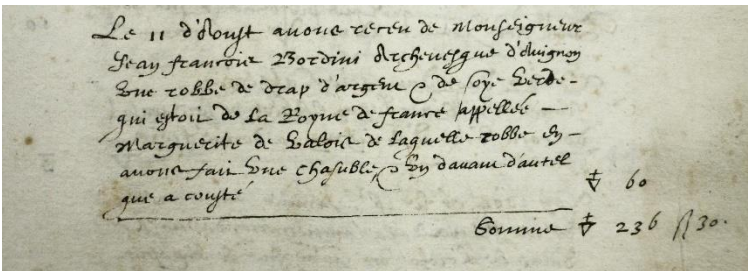 Le 11 d'Aoust avons receu de Monseigneur
Jean francois Bordini Archevesque d'Avignon
une robbe de drap d'argent & de soye verde
qui estoit de La Royne de france appellée
Marguerite de Valois de Laquelle robbe en
avons fait une chasuble, & un davant d'autel
que a cousté
60
Somme 236 ß 30.